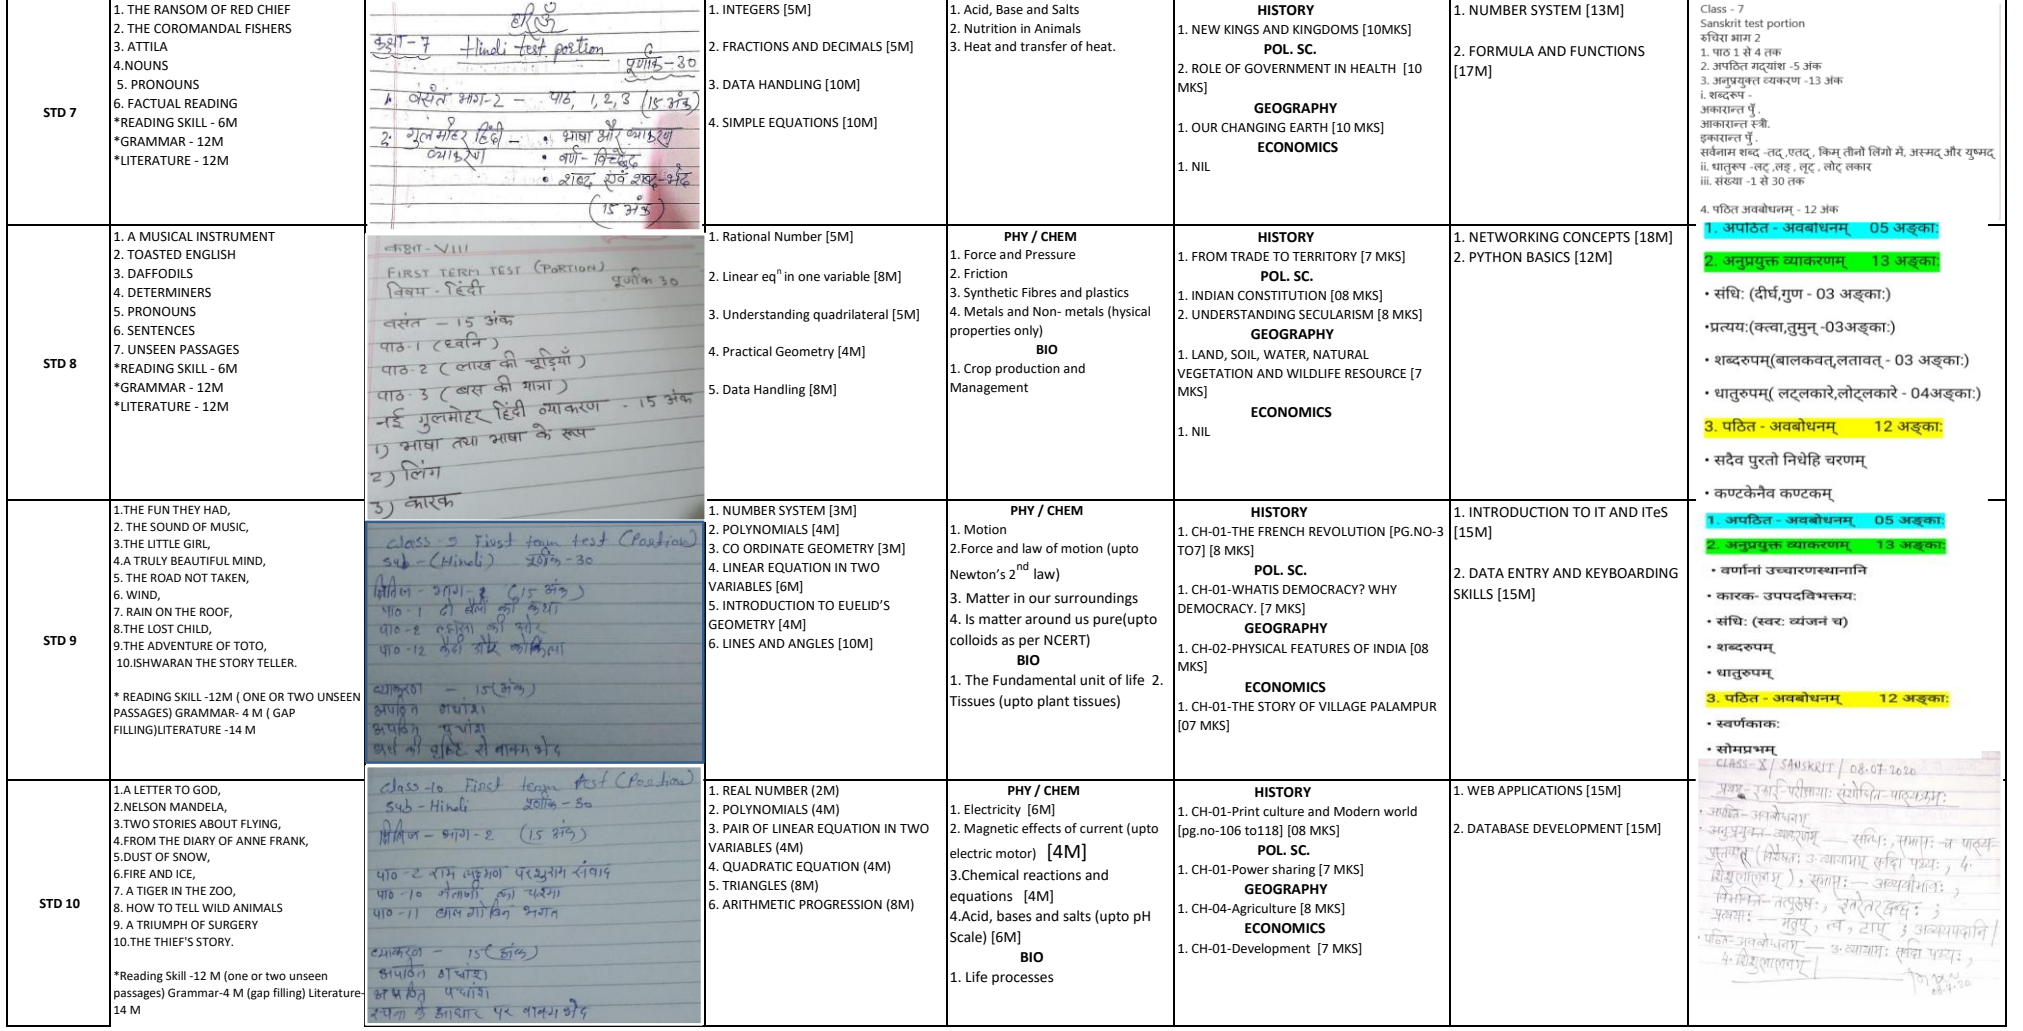 STD 7
1. THE RANSOM OF RED CHIEF
2. THE COROMANDAL FISHERS
3. ATTILA
4.NOUNS
5. PRONOUNS
6. FACTUAL READING
*READING SKILL - 6M
*GRAMMAR - 12M
*LITERATURE - 12M
हरि ॐ
कक्षा - 7 Hindi test portion
पूर्णांक - 30
1. वसंत भाग-2 - पाठ, 1, 2, 3 (15 अंक)
2. गुलमोहर हिंदी - • भाषा और व्याकरण
व्याकरण • वर्ण - विच्छेद
• शब्द एवं शब्द-भेद
(15 अंक)
1. INTEGERS [5M]
2. FRACTIONS AND DECIMALS [5M]
3. DATA HANDLING [10M]
4. SIMPLE EQUATIONS [10M]
1. Acid, Base and Salts
2. Nutrition in Animals
3. Heat and transfer of heat.
HISTORY
1. NEW KINGS AND KINGDOMS [10MKS]
POL. SC.
2. ROLE OF GOVERNMENT IN HEALTH [10
MKS]
GEOGRAPHY
1. OUR CHANGING EARTH [10 MKS]
ECONOMICS
1. NIL
1. NUMBER SYSTEM [13M]
2. FORMULA AND FUNCTIONS
[17M]
Class - 7
Sanskrit test portion
रुचिरा भाग 2
1. पाठ 1 से 4 तक
2. अपठित गद्यांश -5 अंक
3. अनुप्रयुक्त व्यकरण -13 अंक
i. शब्दरूप -
अकारान्त पुँ .
आकारान्त स्त्री.
इकारान्त पुँ .
सर्वनाम शब्द -तद् ,एतद् , किम् तीनो लिंगो में, अस्मद् और युष्मद्
ii. धातुरूप -लट् ,लङ् , लृट् , लोट् लकार
iii. संख्या -1 से 30 तक
4. पठित अवबोधनम् - 12 अंक
STD 8
1. A MUSICAL INSTRUMENT
2. TOASTED ENGLISH
3. DAFFODILS
4. DETERMINERS
5. PRONOUNS
6. SENTENCES
7. UNSEEN PASSAGES
*READING SKILL - 6M
*GRAMMAR - 12M
*LITERATURE - 12M
कक्षा - VIII
FIRST TERM TEST (PORTION)
विषय - हिंदी पूर्णांक 30
वसंत - 15 अंक
पाठ-1 (ध्वनि)
पाठ-2 (लाख की चूड़ियाँ)
पाठ-3 (बस की यात्रा)
नई गुलमोहर हिंदी व्याकरण - 15 अंक
1) भाषा तथा भाषा के रूप
2) लिंग
3) कारक
1. Rational Number [5M]
2. Linear eqⁿ in one variable [8M]
3. Understanding quadrilateral [5M]
4. Practical Geometry [4M]
5. Data Handling [8M]
PHY / CHEM
1. Force and Pressure
2. Friction
3. Synthetic Fibres and plastics
4. Metals and Non- metals (hysical
properties only)
BIO
1. Crop production and
Management
HISTORY
1. FROM TRADE TO TERRITORY [7 MKS]
POL. SC.
1. INDIAN CONSTITUTION [08 MKS]
2. UNDERSTANDING SECULARISM [8 MKS]
GEOGRAPHY
1. LAND, SOIL, WATER, NATURAL
VEGETATION AND WILDLIFE RESOURCE [7
MKS]
ECONOMICS
1. NIL
1. NETWORKING CONCEPTS [18M]
2. PYTHON BASICS [12M]
1. अपठित - अवबोधनम् 05 अङ्का:
2. अनुप्रयुक्त व्याकरणम् 13 अङ्का:
• संधि: (दीर्घ,गुण - 03 अङ्का:)
•प्रत्यय:(क्त्वा,तुमुन् -03अङ्का:)
• शब्दरुपम्(बालकवत्,लतावत् - 03 अङ्का:)
• धातुरुपम्( लट्लकारे,लोट्लकारे - 04अङ्का:)
3. पठित - अवबोधनम् 12 अङ्का:
• सदैव पुरतो निधेहि चरणम्
• कण्टकेनैव कण्टकम्
STD 9
1.THE FUN THEY HAD,
2. THE SOUND OF MUSIC,
3.THE LITTLE GIRL,
4.A TRULY BEAUTIFUL MIND,
5. THE ROAD NOT TAKEN,
6. WIND,
7. RAIN ON THE ROOF,
8.THE LOST CHILD,
9.THE ADVENTURE OF TOTO,
10.ISHWARAN THE STORY TELLER.
* READING SKILL -12M ( ONE OR TWO UNSEEN
PASSAGES) GRAMMAR- 4 M ( GAP
FILLING)LITERATURE -14 M
Class - 9 First team test (Portion)
Sub - (Hindi) पूर्णांक - 30
क्षितिज - भाग - (15 अंक)
पाठ - 1 दो बैलों की कथा
पाठ - 2 ल्हासा की ओर
पाठ - 12 कैदी और कोकिला
व्याकरण - 15 (अंक)
अपठित गद्यांश
अपठित पद्यांश
अर्थ की दृष्टि से वाक्य भेद
1. NUMBER SYSTEM [3M]
2. POLYNOMIALS [4M]
3. CO ORDINATE GEOMETRY [3M]
4. LINEAR EQUATION IN TWO
VARIABLES [6M]
5. INTRODUCTION TO EUELID'S
GEOMETRY [4M]
6. LINES AND ANGLES [10M]
PHY / CHEM
1. Motion
2.Force and law of motion (upto
Newton's 2nd law)
3. Matter in our surroundings
4. Is matter around us pure(upto
colloids as per NCERT)
BIO
1. The Fundamental unit of life 2.
Tissues (upto plant tissues)
HISTORY
1. CH-01-THE FRENCH REVOLUTION [PG.NO-3
TO7] [8 MKS]
POL. SC.
1. CH-01-WHATIS DEMOCRACY? WHY
DEMOCRACY. [7 MKS]
GEOGRAPHY
1. CH-02-PHYSICAL FEATURES OF INDIA [08
MKS]
ECONOMICS
1. CH-01-THE STORY OF VILLAGE PALAMPUR
[07 MKS]
1. INTRODUCTION TO IT AND ITeS
[15M]
2. DATA ENTRY AND KEYBOARDING
SKILLS [15M]
1. अपठित - अवबोधनम् 05 अङ्का:
2. अनुप्रयुक्त व्याकरणम् 13 अङ्का:
• वर्णानां उच्चारणस्थानानि
• कारक- उपपदविभक्तय:
• संधि: (स्वर: व्यंजनं च)
• शब्दरुपम्
• धातुरुपम्
3. पठित - अवबोधनम् 12 अङ्का:
• स्वर्णकाक:
• सोमप्रभम्
STD 10
1.A LETTER TO GOD,
2.NELSON MANDELA,
3.TWO STORIES ABOUT FLYING,
4.FROM THE DIARY OF ANNE FRANK,
5.DUST OF SNOW,
6.FIRE AND ICE,
7. A TIGER IN THE ZOO,
8. HOW TO TELL WILD ANIMALS
9. A TRIUMPH OF SURGERY
10.THE THIEF'S STORY.
*Reading Skill -12 M (one or two unseen
passages) Grammar-4 M (gap filling) Literature-
14 M
Class - 10 First team test (Portion)
Sub - Hindi पूर्णांक - 30
क्षितिज - भाग - 2 (15 अंक)
पाठ - 2 राम लक्ष्मण परशुराम संवाद
पाठ - 10 नेताजी का चश्मा
पाठ - 11 बाल गोबिन भगत
व्याकरण - 15 (अंक)
अपठित गद्यांश
अपठित पद्यांश
रचना के आधार पर वाक्य भेद
1. REAL NUMBER (2M)
2. POLYNOMIALS (4M)
3. PAIR OF LINEAR EQUATION IN TWO
VARIABLES (4M)
4. QUADRATIC EQUATION (4M)
5. TRIANGLES (8M)
6. ARITHMETIC PROGRESSION (8M)
PHY / CHEM
1. Electricity [6M]
2. Magnetic effects of current (upto
electric motor) [4M]
3.Chemical reactions and
equations [4M]
4.Acid, bases and salts (upto pH
Scale) [6M]
BIO
1. Life processes
HISTORY
1. CH-01-Print culture and Modern world
[pg.no-106 to118] [08 MKS]
POL. SC.
1. CH-01-Power sharing [7 MKS]
GEOGRAPHY
1. CH-04-Agriculture [8 MKS]
ECONOMICS
1. CH-01-Development [7 MKS]
1. WEB APPLICATIONS [15M]
2. DATABASE DEVELOPMENT [15M]
CLASS-X / SANSKRIT / 08.07.2020
अपठित-अवबोधनम्
अनुप्रयुक्त-व्याकरणम् - सन्धिः, समासः च पाठ्य-
शिशुलालनम्), समासः - अव्ययीभावः,
विभक्ति-तत्पुरुषः, इतरेतरद्वन्द्वः;
प्रत्ययाः - मतुप्, त्व, टाप्; अव्ययपदानि।
पठित-अवबोधनम् - 3. व्यायामः सर्वदा पथ्यः,
4. शिशुलालनम्।